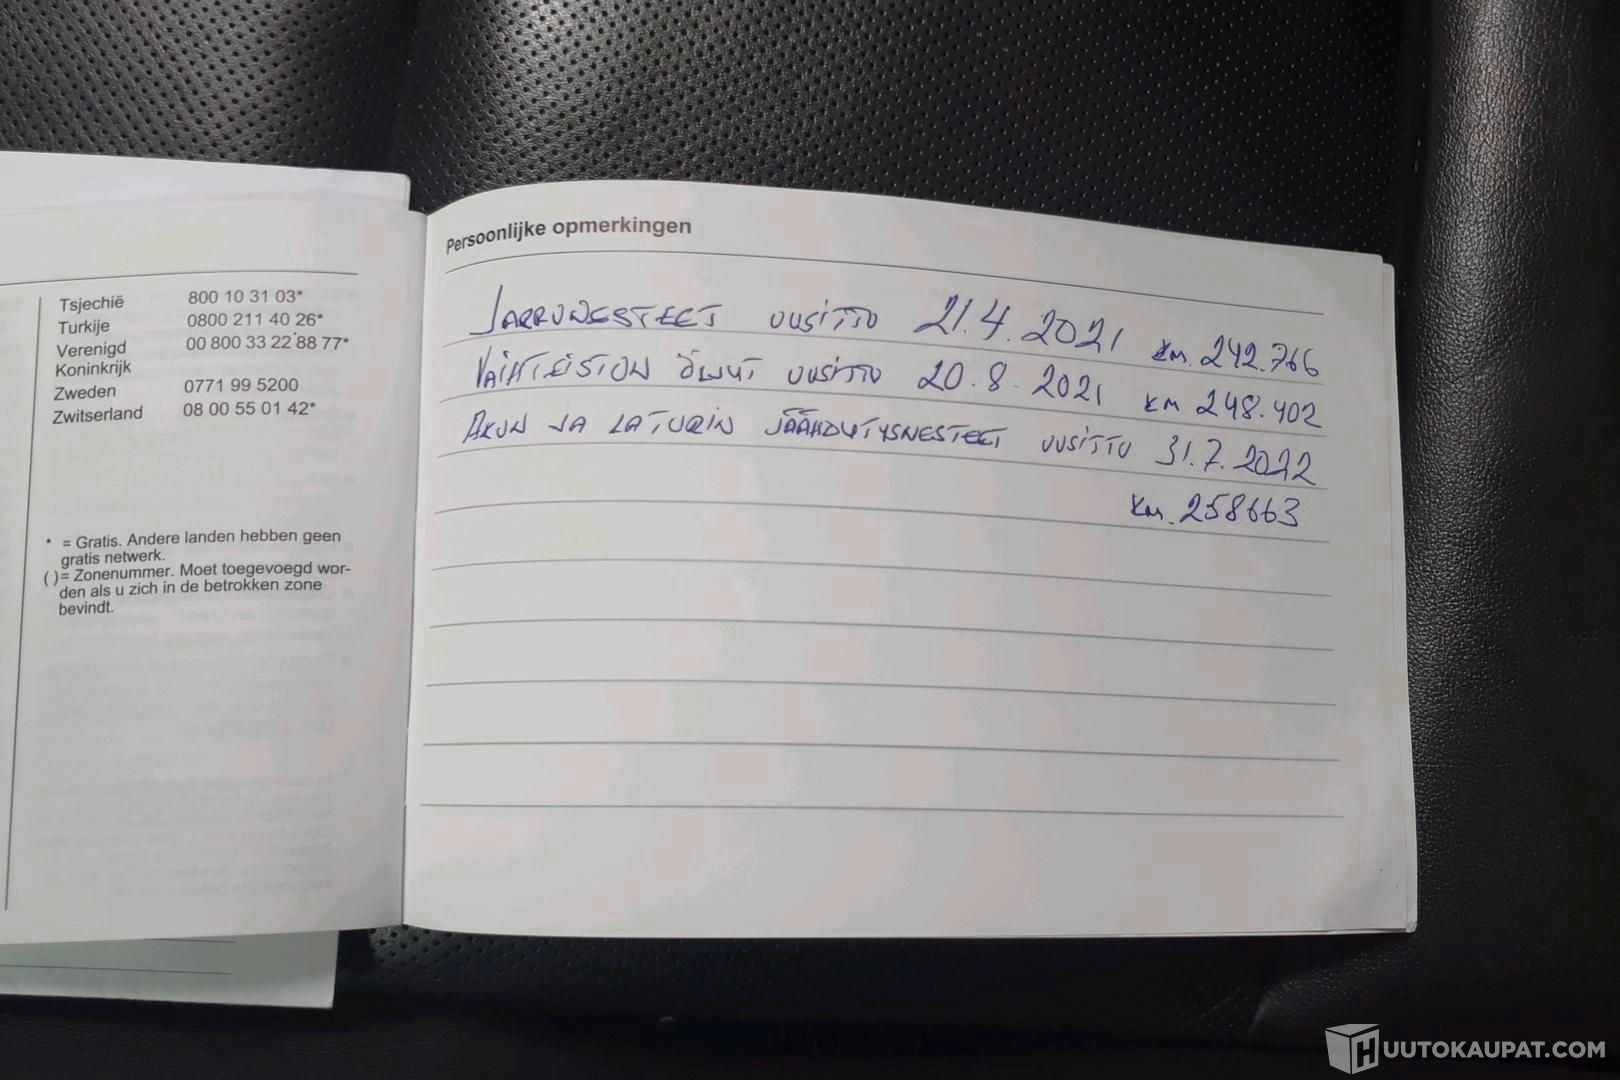 Tsjechië 800 10 31 03*
Turkije 0800 211 40 26*
Verenigd 00 800 33 22 88 77*
Koninkrijk
Zweden 0771 99 5200
Zwitserland 08 00 55 01 42*
* = Gratis. Andere landen hebben geen
gratis netwerk.
( )= Zonenummer. Moet toegevoegd wor-
den als u zich in de betrokken zone
bevindt.
Persoonlijke opmerkingen
JARRUNESTEET UUSITTU 21.4.2021 KM. 242.766
VAIHTEISTON ÖLJYT UUSITTU 20.8.2021 KM 248.402
AKUN JA LATURIN JÄÄHDYTYSNESTEET UUSITTU 31.7.2022
KM. 258663
HUUTOKAUPAT.COM